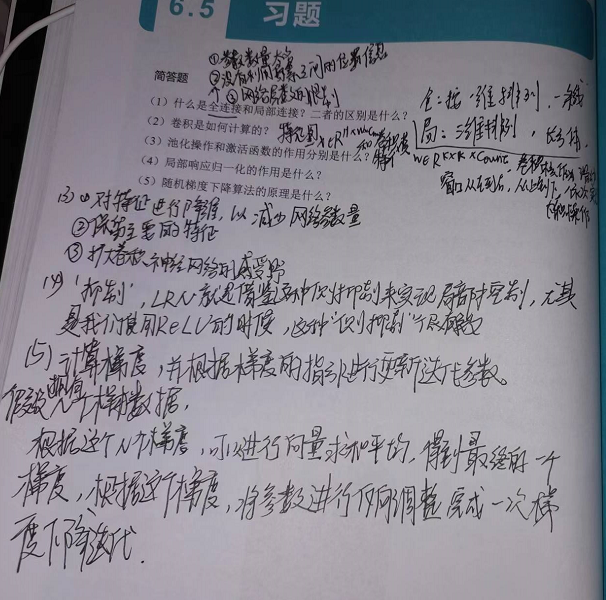 6.5 习题
①参数数量太多
②没有利用像素之间的位置信息
③网络层数的限制
简答题
(1) 什么是全连接和局部连接?二者的区别是什么?
(2) 卷积是如何计算的?
(3) 池化操作和激活函数的作用分别是什么?
(4) 局部响应归一化的作用是什么?
(5) 随机梯度下降算法的原理是什么?
全:按一维排列,一条线
局:三维排列,长方体
窗口从左到右,从上到下,
(3) ①对特征进行降维,以减少网络参数量
②保留主要的特征
③扩大卷积神经网络的感受野
(4) "抑制",LRN就是借鉴这种侧抑制来实现局部抑制,尤其
是我们使用ReLU的时候,这种"侧抑制"
(5) 计算梯度,并根据梯度的指引进行更新迭代参数。
假设有N个样本数据,
根据这个N个梯度,可以进行向量求和平均,得到最终的一个
梯度,根据这个梯度,将参数进行调整完成一次梯
度下降迭代.